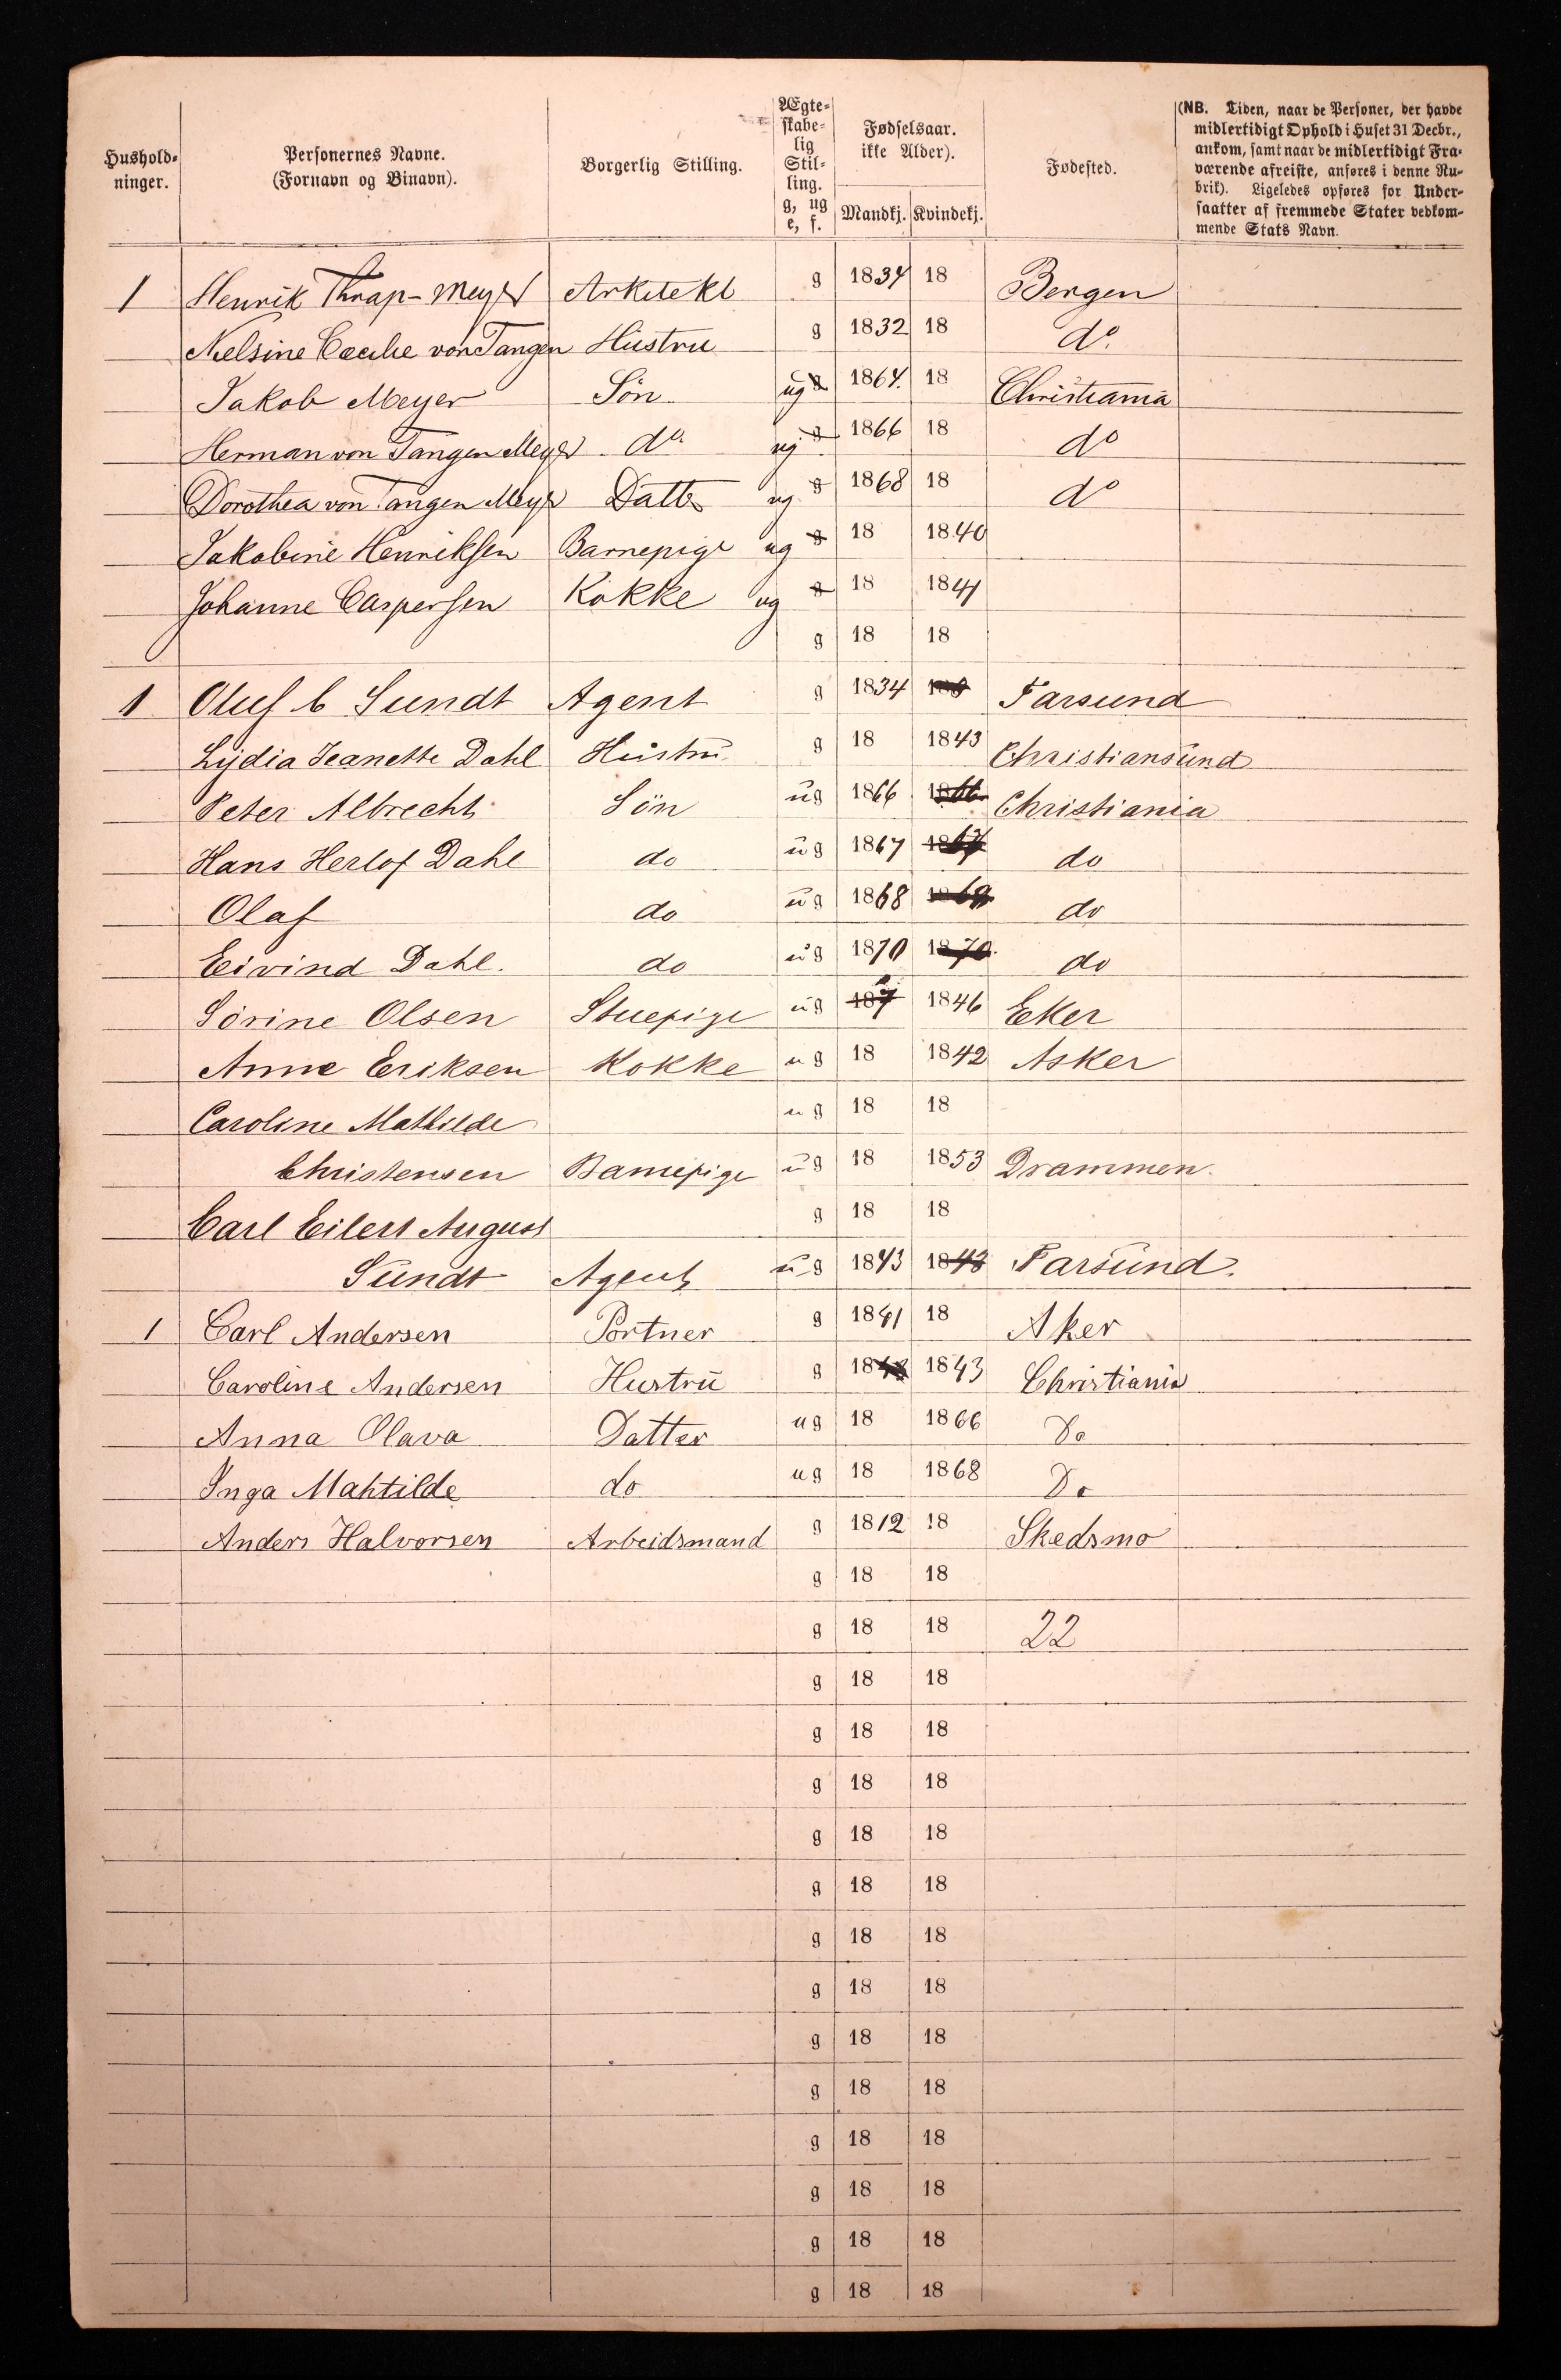 Hushold-
ninger.
Personernes Navne.
(Fornavn og Binavn).
Borgerlig Stilling.
Ægte-
skabe-
lig
Stil-
ling.
g, ug
e, f.
Fødselsaar.
ikke Alder).
Mandkj. Kvindekj.
Fødested.
(NB. Tiden, naar de Personer, der havde
midlertidigt Ophold i Huset 31 Decbr.,
ankom, samt naar de midlertidigt Fra-
værende afreiste, anføres i denne Ru-
brik). Ligeledes opføres for Under-
saatter af fremmede Stater vedkom-
mende Stats Navn.
1 Henrik Thrap-Meyer Arkitekt g 1834 18 Bergen
Nielsine Cæcilie von Tangen Hustru g 1832 18 do.
Jakob Meyer Sön ug 1864. 18 Christiania
Herman von Tangen Meyer do ug 1866 18 do
Dorothea von Tangen Meyer Datter ug 1868 18 do
Jakobine Henriksen Barnepige ug 18 1840
Johanne Caspersen Kokke ug 18 1841
g 18 18
1 Oluf C Sundt Agent g 1834 Farsund
Lydia Jeanette Dahl Hustru g 18 1843 Christiansund
Peter Albrecht Sön ug 1866 1866 Christiania
Hans Herlof Dahl do ug 1867 1867 do
Olaf do ug 1868 1869 do
Eivind Dahl. do ug 1870 1870. do
Sörine Olsen Stuepige ug 187 1846 Eker
Anne Eriksen Kokke ug 18 1842 Asker
Caroline Mathilde ug 18 18
Christensen Barnepige ug 18 1853 Drammen.
Carl Eilert August g 18 18
Sundt Agent ug 1843 1843 Farsund.
1 Carl Andersen Portner g 1841 18 Aker
Caroline Andersen Hustru g 1843 1843 Christiania
Anna Olava Datter ug 18 1866 Do
Inga Mahtilde do ug 18 1868 Do
Anders Halvorsen Arbeidsmand g 1812 18 Skedsmo
g 18 18
g 18 18 22
g 18 18
g 18 18
g 18 18
g 18 18
g 18 18
g 18 18
g 18 18
g 18 18
g 18 18
g 18 18
g 18 18
g 18 18
g 18 18